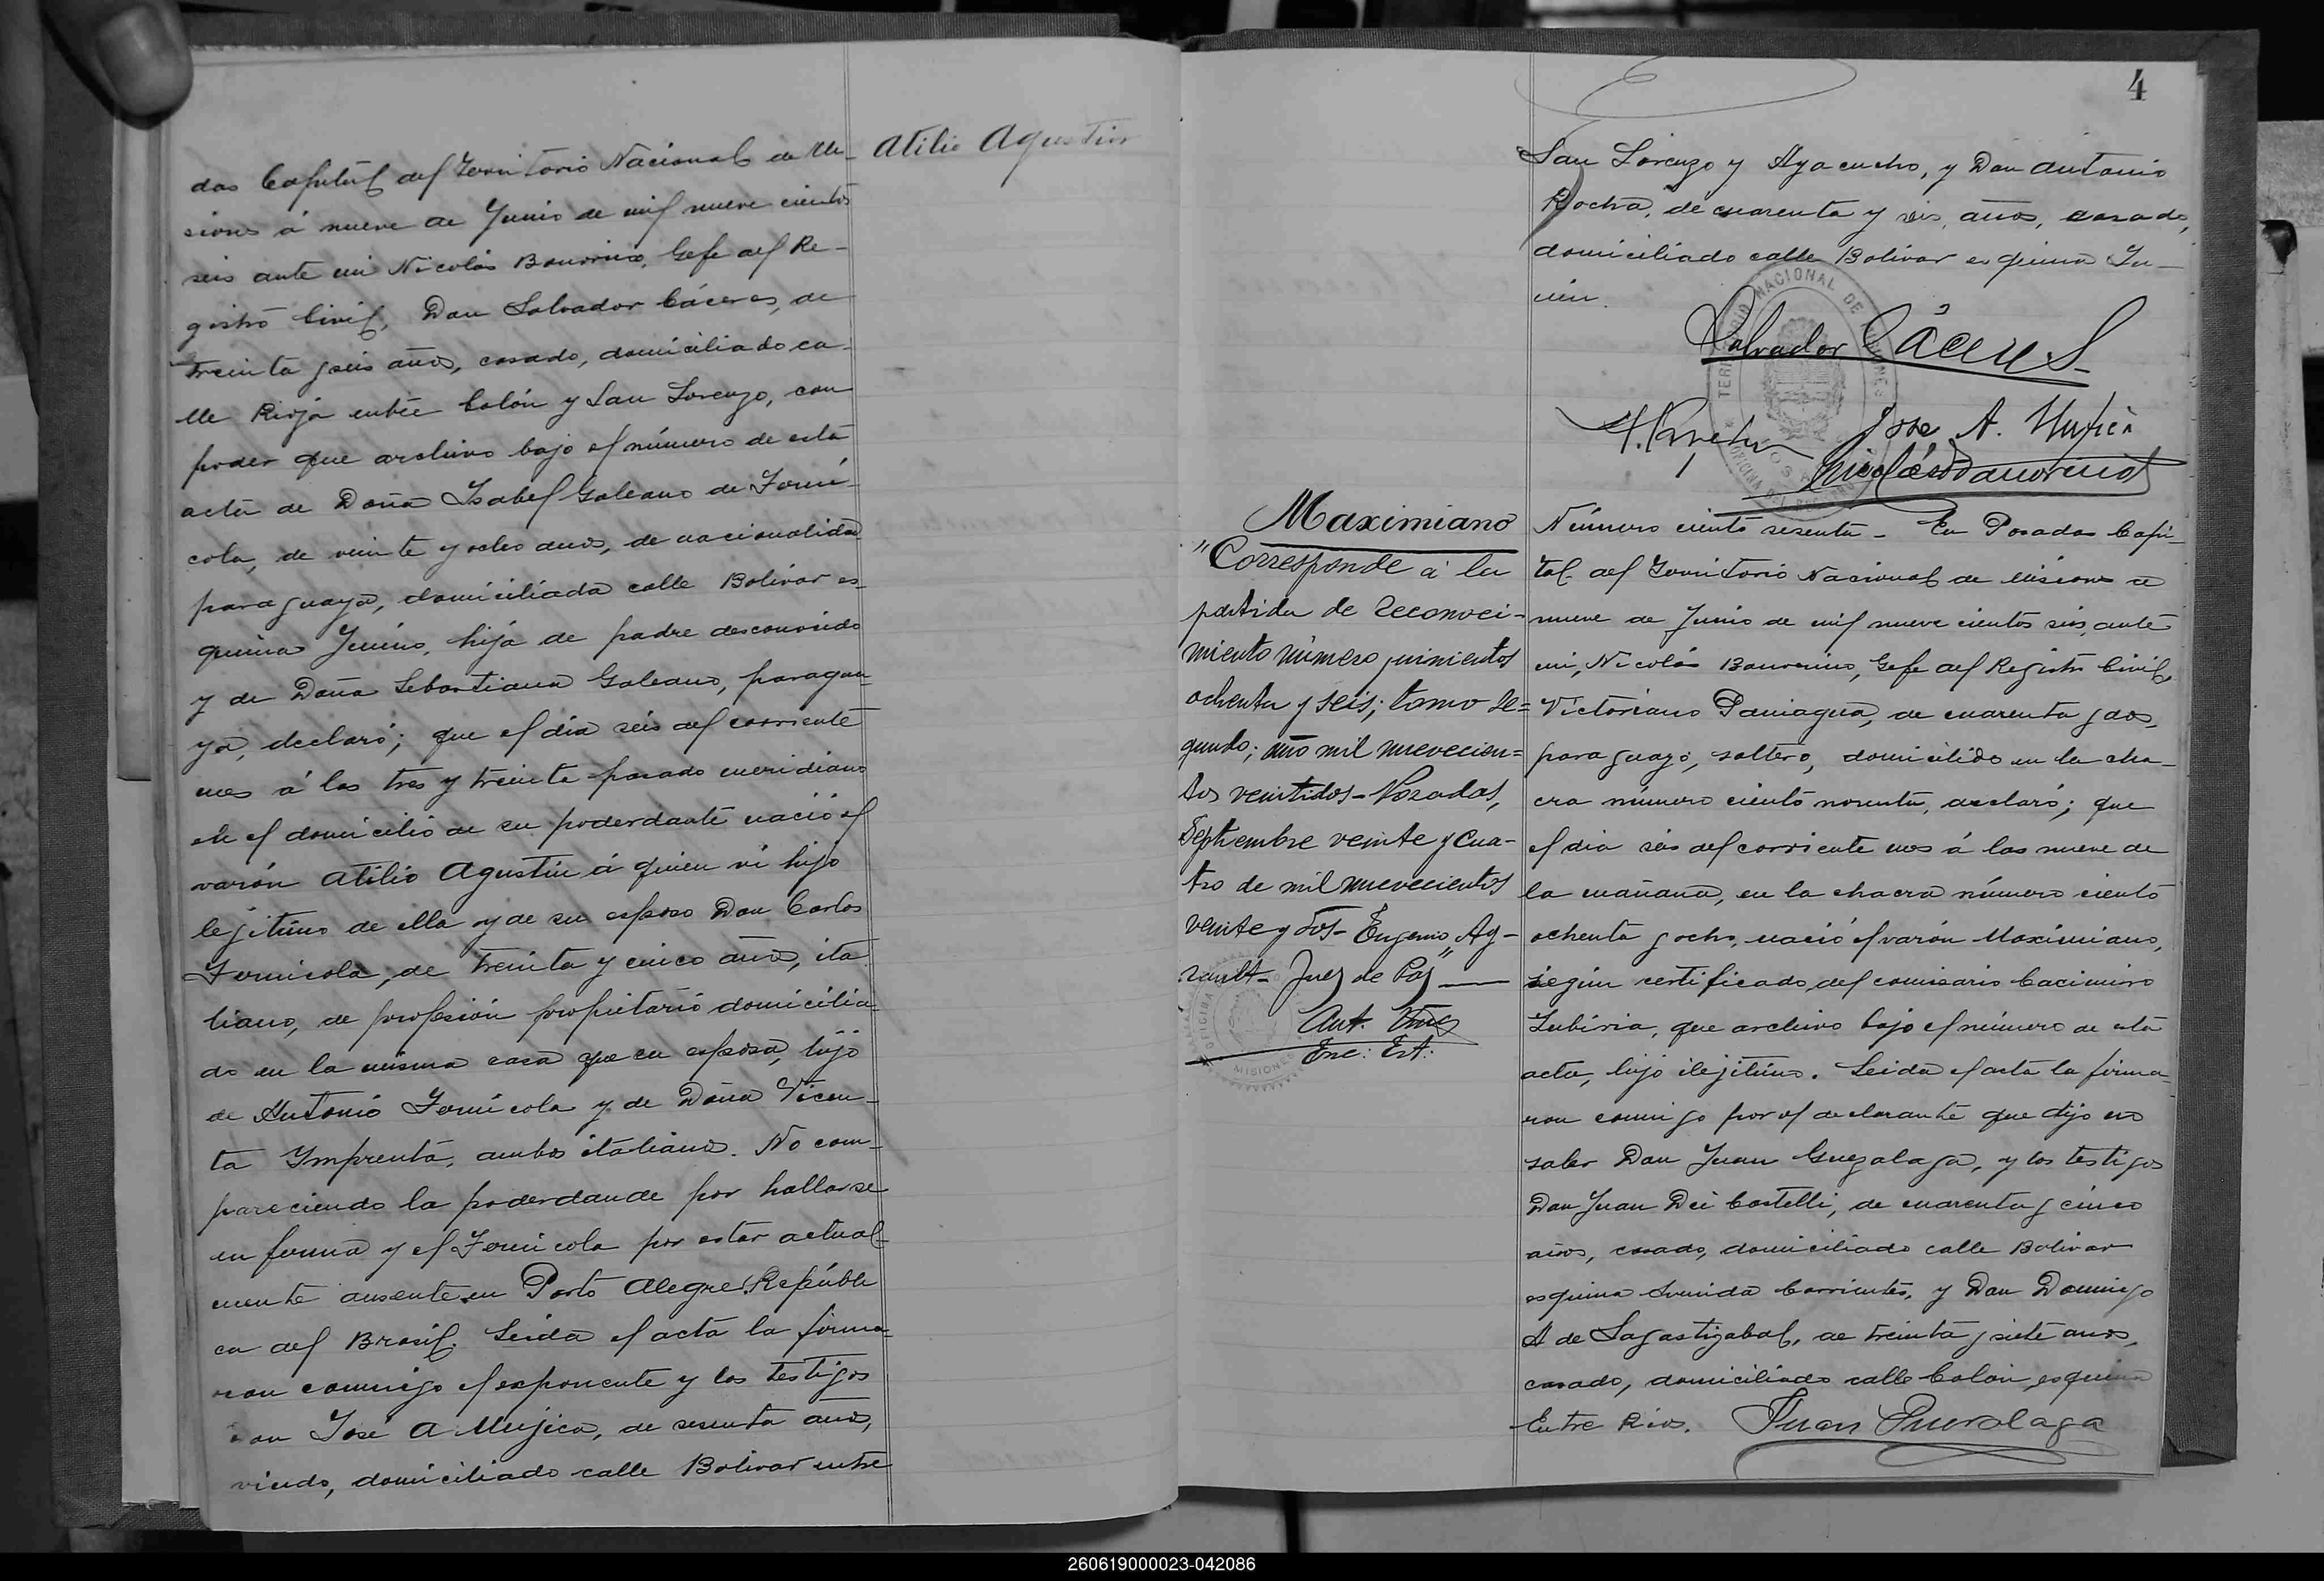 das Capital del Territorio Nacional de Mi-
siones á nueve de Junio de mil nueve cientos
seis ante mi Nicolás Bonorino, Gefe del Re-
gistro Civil, Don Salvador Cáceres, de
treinta y seis años, casado, domiciliado ca-
lle Rioja entre Colón y San Lorenzo, con
poder que archivo bajo el número de esta
acta de Doña Isabel Galeano de Forni-
cola, de veinte y ocho años, de nacionalidad
paraguaya, domiciliada calle Bolivar es-
quina Junin, hija de padre desconocido
y de Doña Sebastiana Galeano, paragua-
ya, declaró; que el dia seis del corriente
mes á las tres y treinta pasado meridiano
en el domicilio de su poderdante nació el
varón Atilio Agustin á quien vi hijo
lejitimo de ella y de su esposo Don Carlos
Fornicola, de treinta y cinco años, ita
liano, de profesión propietario domicilia-
do en la misma casa que su esposa, hijo
de Antonio Fornicola y de Doña Vicen-
ta Imprenta, ambos italianos. No com-
pareciendo la poderdande por hallarse
enferma y el Fornicola por estar actual-
mente ausente en Porto Alegre, Republi
ca del Brasil. Leida el acta la firma-
ron conmigo el exponente y los testigos
Don José A Mujica, de sesenta años,
viudo, domiciliado calle Bolivar entre
Atilio Agustin
4
San Lorenzo y Ayacucho, y Don Antonio
Rocha, de cuarenta y seis, años, casado,
domiciliado calle Bolivar esquina Ju-
nin.
Salvador Cáceres
Jose A. Mujica
Nicolás Bonorino
TERRITORIO NACIONAL DE MISIONES
Maximiano
"Corresponde á la
partida de reconoci-
miento número quinientos
ochenta y seis; tomo se=
gundo; año mil novecien=
tos veintidos - Posadas,
Septiembre veinte y cua-
tro de mil novecientos
veinte y dos - Eugenio Ay-
rault - Juez de Paz" —
Enc: Est:
MISIONES
Número ciento sesenta - En Posadas Capi-
tal del Territorio Nacional de Misiones a
nueve de Junio de mil nueve cientos seis, ante
mi, Nicolás Bonorino, Gefe del Registro Civil,
Victoriano Paniagua, de cuarenta y dos,
paraguayo, soltero, domicilido en la cha-
cra número ciento noventa, declaró; que
el dia seis del corriente mes á las nueve de
la mañana, en la chacra número ciento
ochenta y ocho, nació el varón Maximiano,
según certificado del comisario Cacimiro
Lubiria, que archivo bajo el número de esta
acta, hijo ilejitimo. Leida el acta la firma-
ron conmigo por el declarante que dijo no
saber Don Juan Guezalaga, y los testigos
Don Juan Dei Castelli, de cuarenta y cinco
años, casado, domiciliado calle Bolivar
esquina Avenida Corrientes, y Don Domingo
A de Sagastizabal, de treinta y siete años,
casado, domiciliado calle Colón esquina
Entre Rios. Juan Guezalaga
260619000023-042086